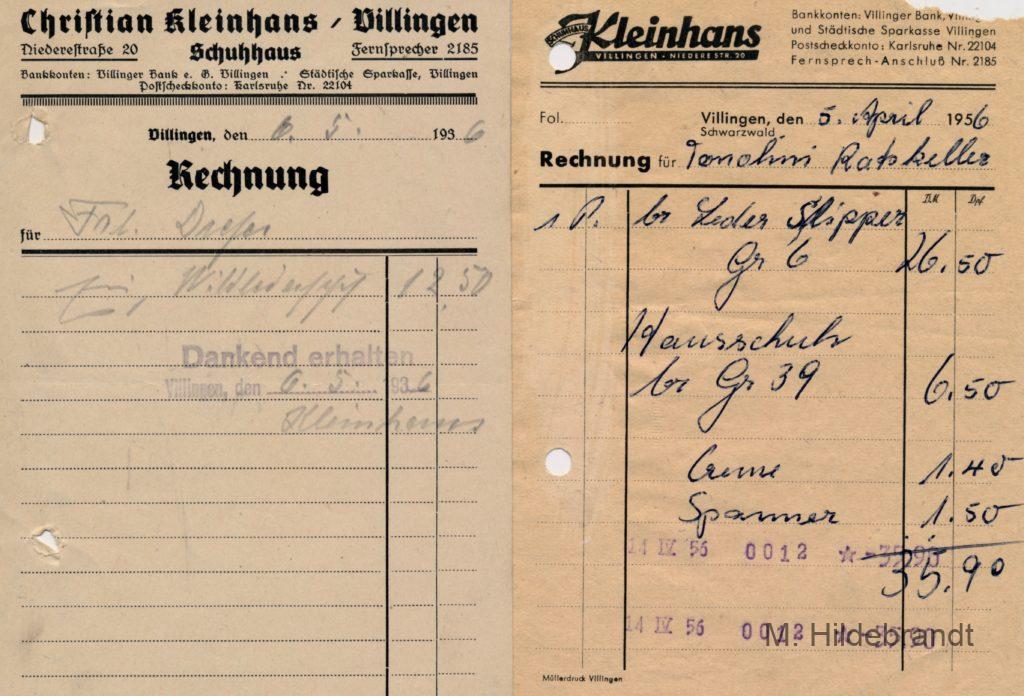 Christian Kleinhans / Villingen
Niederestraße 20 Schuhhaus Fernsprecher 2185
Bankkonten: Villinger Bank e. G. Villingen .·. Städtische Sparkasse, Villingen
Postscheckkonto: Karlsruhe Nr. 22104
Villingen, den 6. 5. 1936
Rechnung
für Frl.
12.50
Dankend erhalten
Villingen, den 6. 5. 1936
Kleinhans
SCHUHHAUS
Kleinhans
VILLINGEN · NIEDERE STR. 20
Bankkonten: Villinger Bank, Villingen
und Städtische Sparkasse Villingen
Postscheckkonto: Karlsruhe Nr. 22104
Fernsprech-Anschluß Nr. 2185
Fol. Villingen, den 5. April 1956
Schwarzwald
Rechnung für Tonolini Ratskeller
DM Dpf.
1 P. br Leder Slipper
Gr 6 26.50
Hausschuh
br Gr 39 6.50
Creme 1.40
Spanner 1.50
14 IV 56 0012 ☆ -35.90
35.90
14 IV 56 0012 ☆ -35.90
M. Hildebrandt
Müllerdruck Villingen